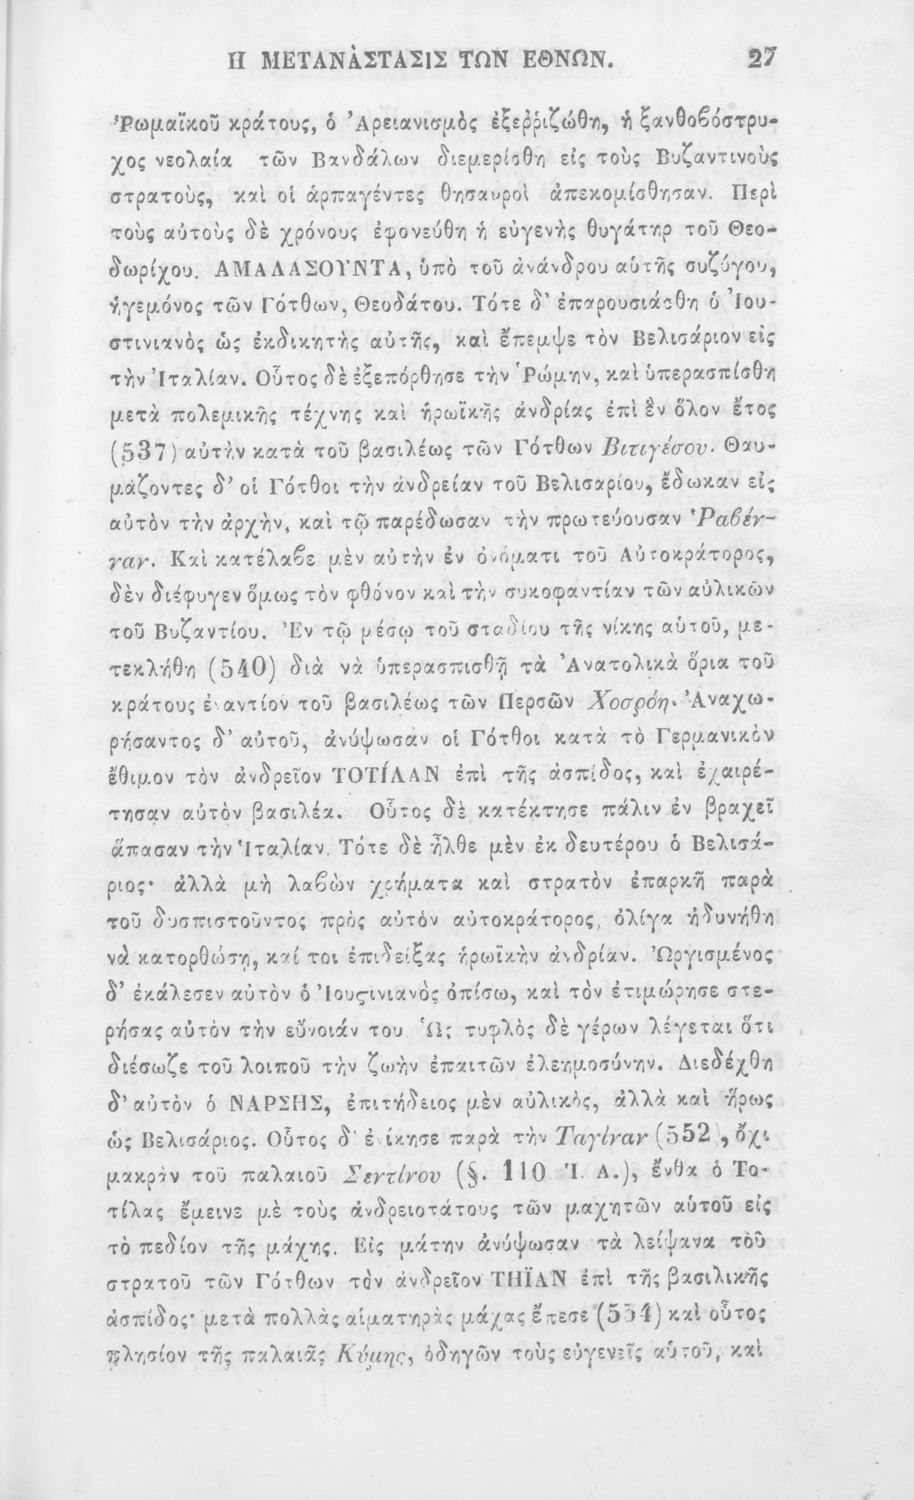 Η ΜΕΤΑΝΑΣΤΑΣΙΣ ΤΩΝ ΕΘΝΩΝ. 27
Ῥωμαϊκοῦ κράτους, ὁ Ἀρειανισμὸς ἐξεῤῥιζώθη, ἡ ξανθοβόστρυ-
χος νεολαία τῶν Βανδάλων διεμερίσθη εἰς τοὺς Βυζαντινοὺς
στρατοὺς, καὶ οἱ ἁρπαγέντες θησαυροὶ ἀπεκομίσθησαν. Περὶ
τοὺς αὐτοὺς δὲ χρόνους ἐφονεύθη ἡ εὐγενὴς θυγάτηρ τοῦ Θεο-
δωρίχου. ΑΜΑΛΑΣΟΥΝΤΑ, ὑπὸ τοῦ ἀνάνδρου αὑτῆς συζύγου,
ἡγεμόνος τῶν Γότθων, Θεοδάτου. Τότε δ' ἐπαρουσιάσθη ὁ Ἰου-
στινιανὸς ὡς ἐκδικητὴς αὐτῆς, καὶ ἔπεμψε τὸν Βελισάριον εἰς
τὴν Ἰταλίαν. Οὗτος δὲ ἐξεπόρθησε τὴν Ῥώμην, καὶ ὑπερασπίσθη
μετὰ πολεμικῆς τέχνης καὶ ἡρωϊκῆς ἀνδρίας ἐπὶ ἓν ὅλον ἔτος
(537) αὐτὴν κατὰ τοῦ βασιλέως τῶν Γότθων Βιτιγέσου. Θαυ-
μάζοντες δ' οἱ Γότθοι τὴν ἀνδρείαν τοῦ Βελισαρίου, ἔδωκαν εἰς
αὐτὸν τὴν ἀρχὴν, καὶ τῷ παρέδωσαν τὴν πρωτεύουσαν Ῥαβέν-
ναν. Καὶ κατέλαβε μὲν αὐτὴν ἐν ὀνόματι τοῦ Αὐτοκράτορος,
δὲν διέφυγεν ὅμως τὸν φθόνον καὶ τὴν συκοφαντίαν τῶν αὐλικῶν
τοῦ Βυζαντίου. Ἐν τῷ μέσῳ τοῦ σταδίου τῆς νίκης αὑτοῦ, με-
τεκλήθη (540) διὰ νὰ ὑπερασπισθῇ τὰ Ἀνατολικὰ ὅρια τοῦ
κράτους ἐναντίον τοῦ βασιλέως τῶν Περσῶν Χοσρόη. Ἀναχω-
ρήσαντος δ' αὐτοῦ, ἀνύψωσαν οἱ Γότθοι κατὰ τὸ Γερμανικὸν
ἔθιμον τὸν ἀνδρεῖον ΤΟΤΙΛΑΝ ἐπὶ τῆς ἀσπίδος, καὶ ἐχαιρέ-
τησαν αὐτὸν βασιλέα. Οὗτος δὲ κατέκτησε πάλιν ἐν βραχεῖ
ἅπασαν τὴν Ἰταλίαν. Τότε δὲ ἦλθε μὲν ἐκ δευτέρου ὁ Βελισά-
ριος· ἀλλὰ μὴ λαβὼν χρήματα καὶ στρατὸν ἐπαρκῆ παρὰ
τοῦ δυσπιστοῦντος πρὸς αὐτὸν αὐτοκράτορος, ὀλίγα ἠδυνήθη
νὰ κατορθώσῃ, καί τοι ἐπιδείξας ἡρωϊκὴν ἀνδρίαν. Ὠργισμένος
δ' ἐκάλεσεν αὐτὸν ὁ Ἰουςινιανὸς ὀπίσω, καὶ τὸν ἐτιμώρησε στε-
ρήσας αὐτὸν τὴν εὔνοιάν του. Ὡς τυφλὸς δὲ γέρων λέγεται ὅτι
διέσωζε τοῦ λοιποῦ τὴν ζωὴν ἐπαιτῶν ἐλεημοσύνην. Διεδέχθη
δ' αὐτὸν ὁ ΝΑΡΣΗΣ, ἐπιτήδειος μὲν αὐλικὸς, ἀλλὰ καὶ ἥρως
ὡς Βελισάριος. Οὗτος δ' ἐνίκησε παρὰ τὴν Ταγίναν (552), ὄχι
μακρὰν τοῦ παλαιοῦ Σεντίνου (§. 110 Ἰ. Α.), ἔνθα ὁ Το-
τίλας ἔμεινε μὲ τοὺς ἀνδρειοτάτους τῶν μαχητῶν αὑτοῦ εἰς
τὸ πεδίον τῆς μάχης. Εἰς μάτην ἀνύψωσαν τὰ λείψανα τοῦ
στρατοῦ τῶν Γότθων τὸν ἀνδρεῖον ΤΗΪΑΝ ἐπὶ τῆς βασιλικῆς
ἀσπίδος· μετὰ πολλὰς αἱματηρὰς μάχας ἔπεσε (554) καὶ οὗτος
πλησίον τῆς παλαιᾶς Κύμης, ὁδηγῶν τοὺς εὐγενεῖς αὑτοῦ, καὶ